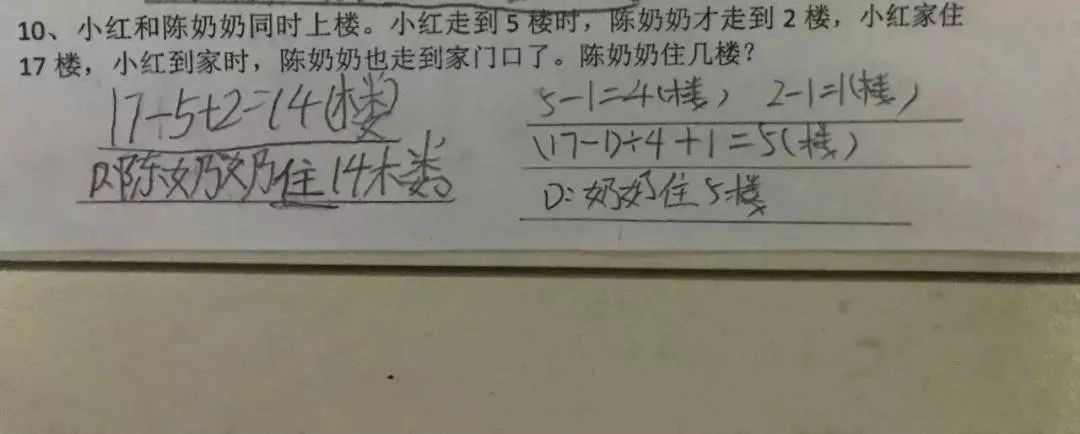 10、小红和陈奶奶同时上楼。小红走到 5 楼时，陈奶奶才走到 2 楼，小红家住
17 楼，小红到家时，陈奶奶也走到家门口了。陈奶奶住几楼？
17-5+2=14(楼)
D:陈奶奶住14楼。
5-1=4(楼) 2-1=1(楼)
(17-1)÷4+1=5(楼)
D:奶奶住5楼